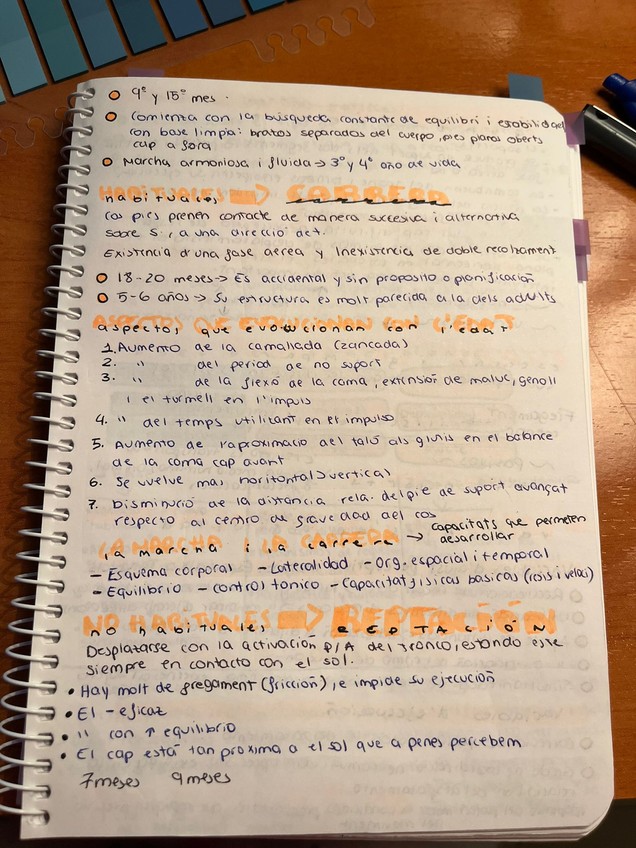 9º y 15º mes.
Comienta con la búsqueda constante de equilibri i estabilidad
con base limpia: bratos separados del cuerpo, pies planos oberts
cap a fora
Marcha armoniosa i fluida → 3º y 4º año de vida
Habituales → CARRERA
Los pies prenen contacte de manera succesiva i alternativa
sobre S, i a una direcció det.
Existencia d'una fase aerea y Inexistencia de doble recolzament
18-20 meses → Es accidental y sin proposito o planificación
5-6 años → Su estructura es molt parecida a la dels adults
aspectos que evolucionan con l'edat
1. Aumento de la camallada (zancada)
2. " del period de no suport
3. " de la flexó de la cama, extensió de maluc, genoll
i el turmell en l'impuls
4. " del temps utilitzant en el impulso
5. Aumento de l'aproximacio del taló als gluris en el balance
de la coma cap avant
6. Se vuelve mas horitontal > vertical
7. Disminució de la distancia rela. del pie de suport avançat
respecto al centro de gravedad del cos
la marcha i la carrera → capacitats que permeten
desarrollar
- Esquema corporal - Lateralidad - Org. espacial i temporal
- Equilibrio - control tonico - Capacitat fisicas basicas (rois i veloci)
no habituales → REPTACIÓN
Desplatarse con la activación P/A del tronco, estando este
siempre en contacto con el sol.
Hay molt de fregament (fricción), e impide su ejecución
El - eficaz
" con ↑ equilibrio
El cap está tan proxima a el sol que a penes percebem
7 meses 9 meses